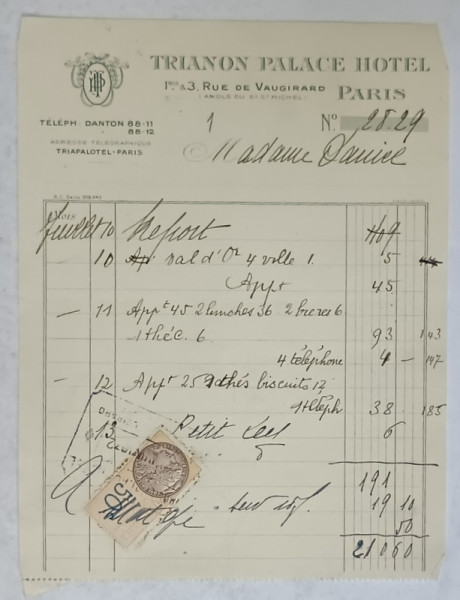 TRIANON PALACE HOTEL
1bis & 3, RUE DE VAUGIRARD
(ANGLE DU Bd St MICHEL)
PARIS
TÉLÉPH: DANTON 88-11
88-12
ADRESSE TÉLÉGRAPHIQUE
TRIAPALOTEL-PARIS
1 No 28.29
Madame Daniel
Mois
Juillet 10 Report
10 val d'Or 4 5
Appt 45
11 Appt 45 2 lunches 36 2 6
1 thé c. 6 93 143
4 téléphone 4 147
12 Appt 25 thés biscuits
1 teleph 38 185
13 Petit 6
191
19 10
50
210 60